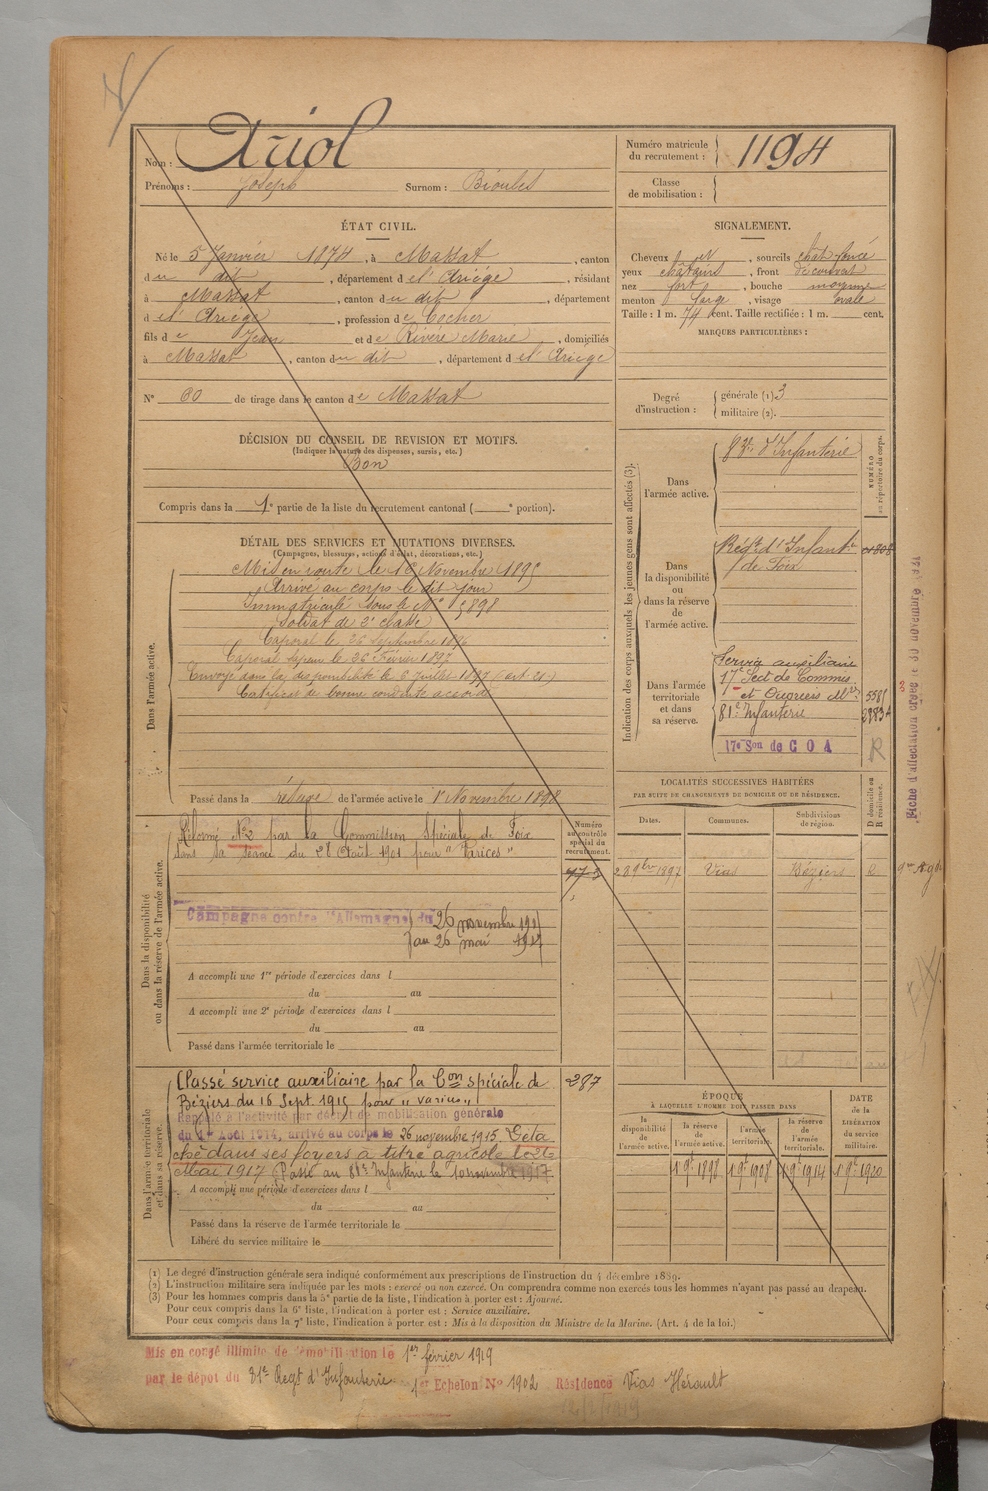 Nom : Ariol
Prénoms : Joseph Surnom : Bioulès
Numéro matricule du recrutement : 1194
Classe de mobilisation :
ÉTAT CIVIL.
Né le 5 Janvier 1874, à Massat, canton
du dit, département de l'Ariège, résidant
à Massat, canton du dit, département
de l'Ariège, profession de Cocher
fils de Jean et de Rivère Marie, domiciliés
à Massat, canton du dit, département de l'Ariège
N° 60 de tirage dans le canton de Massat
SIGNALEMENT.
Cheveux et, sourcils chât. foncé
yeux châtains, front découvert
nez fort, bouche moyenne
menton large, visage ovale
Taille : 1 m. 74 cent. Taille rectifiée : 1 m. cent.
MARQUES PARTICULIÈRES :
Degré d'instruction : générale (1) 3
militaire (2).
DÉCISION DU CONSEIL DE REVISION ET MOTIFS.
(Indiquer la nature des dispenses, sursis, etc.)
Bon
Compris dans la 1e partie de la liste du recrutement cantonal ( e portion).
DÉTAIL DES SERVICES ET MUTATIONS DIVERSES.
(Campagnes, blessures, actions d'éclat, décorations, etc.)
Dans l'armée active.
Mis en route le 16 Novembre 1895
Arrivé au corps le dit jour
Immatriculé sous le N° 5898
Soldat de 2e classe
Caporal le 26 Septembre 1896
Caporal sapeur le 26 Février 1897
Envoyé dans la disponibilité le 6 Juillet 1897 (art. 21)
Certificat de bonne conduite accordé
Passé dans la réserve de l'armée active le 1r Novembre 1898
Indication des corps auxquels les jeunes gens sont affectés (3).
NUMÉRO au répertoire du corps.
Dans l'armée active.
83e d'Infanterie
Dans la disponibilité ou dans la réserve de l'armée active.
Régt d'Infantie
de Foix
Dans l'armée territoriale et dans sa réserve.
Service auxiliaire
17e Sect de Commis
et Ouvriers Mres
81e Infanterie
17e Son de C O A
R
Fiche d'affectation créée le 30 novembre
Dans la disponibilité ou dans la réserve de l'armée active.
Numéro au contrôle spécial du recrutement.
Réformé N°2 par la Commission Spéciale de Foix
dans sa séance du 28 Août 1901 pour "Varices"
Campagne contre l'Allemagne du 26 novembre
au 26 mai 1917
A accompli une 1re période d'exercices dans l
du au
A accompli une 2e période d'exercices dans l
du au
Passé dans l'armée territoriale le
LOCALITÉS SUCCESSIVES HABITÉES
PAR SUITE DE CHANGEMENTS DE DOMICILE OU DE RÉSIDENCE.
D domicile ou R résidence.
Dates. Communes. Subdivisions de région.
2 9bre 1897 Vias Béziers R
Dans l'armée territoriale et dans sa réserve.
Passé service auxiliaire par la Con spéciale de 287
Béziers du 16 Sept. 1915 pour "varices"
Rappelé à l'activité par décret de mobilisation générale
du 1er Août 1914, arrivé au corps le 26 novembre 1915. Déta
ché dans ses foyers à titre agricole le 26
Mai 1917 Passé au 81e Infanterie le 10 novembre 1917
A accompli une période d'exercices dans l
du au
Passé dans la réserve de l'armée territoriale le
Libéré du service militaire le
ÉPOQUE
À LAQUELLE L'HOMME DOIT PASSER DANS
la disponibilité de l'armée active.
la réserve de l'armée active.
l'armée territoriale.
la réserve de l'armée territoriale.
DATE de la LIBÉRATION du service militaire.
1 9bre 1898 1 9bre 1908 1 9bre 1914 1 9bre 1920
(1) Le degré d'instruction générale sera indiqué conformément aux prescriptions de l'instruction du 4 décembre 1889.
(2) L'instruction militaire sera indiquée par les mots : exercé ou non exercé. On comprendra comme non exercés tous les hommes n'ayant pas passé au drapeau.
(3) Pour les hommes compris dans la 5e partie de la liste, l'indication à porter est : Ajourné.
Pour ceux compris dans la 6e liste, l'indication à porter est : Service auxiliaire.
Pour ceux compris dans la 7e liste, l'indication à porter est : Mis à la disposition du Ministre de la Marine. (Art. 4 de la loi.)
Mis en congé illimité de démobilisation le 1er février 1919
par le dépôt du 81e Regt d'Infanterie 1er Echelon N° 1902 Résidence Vias Hérault